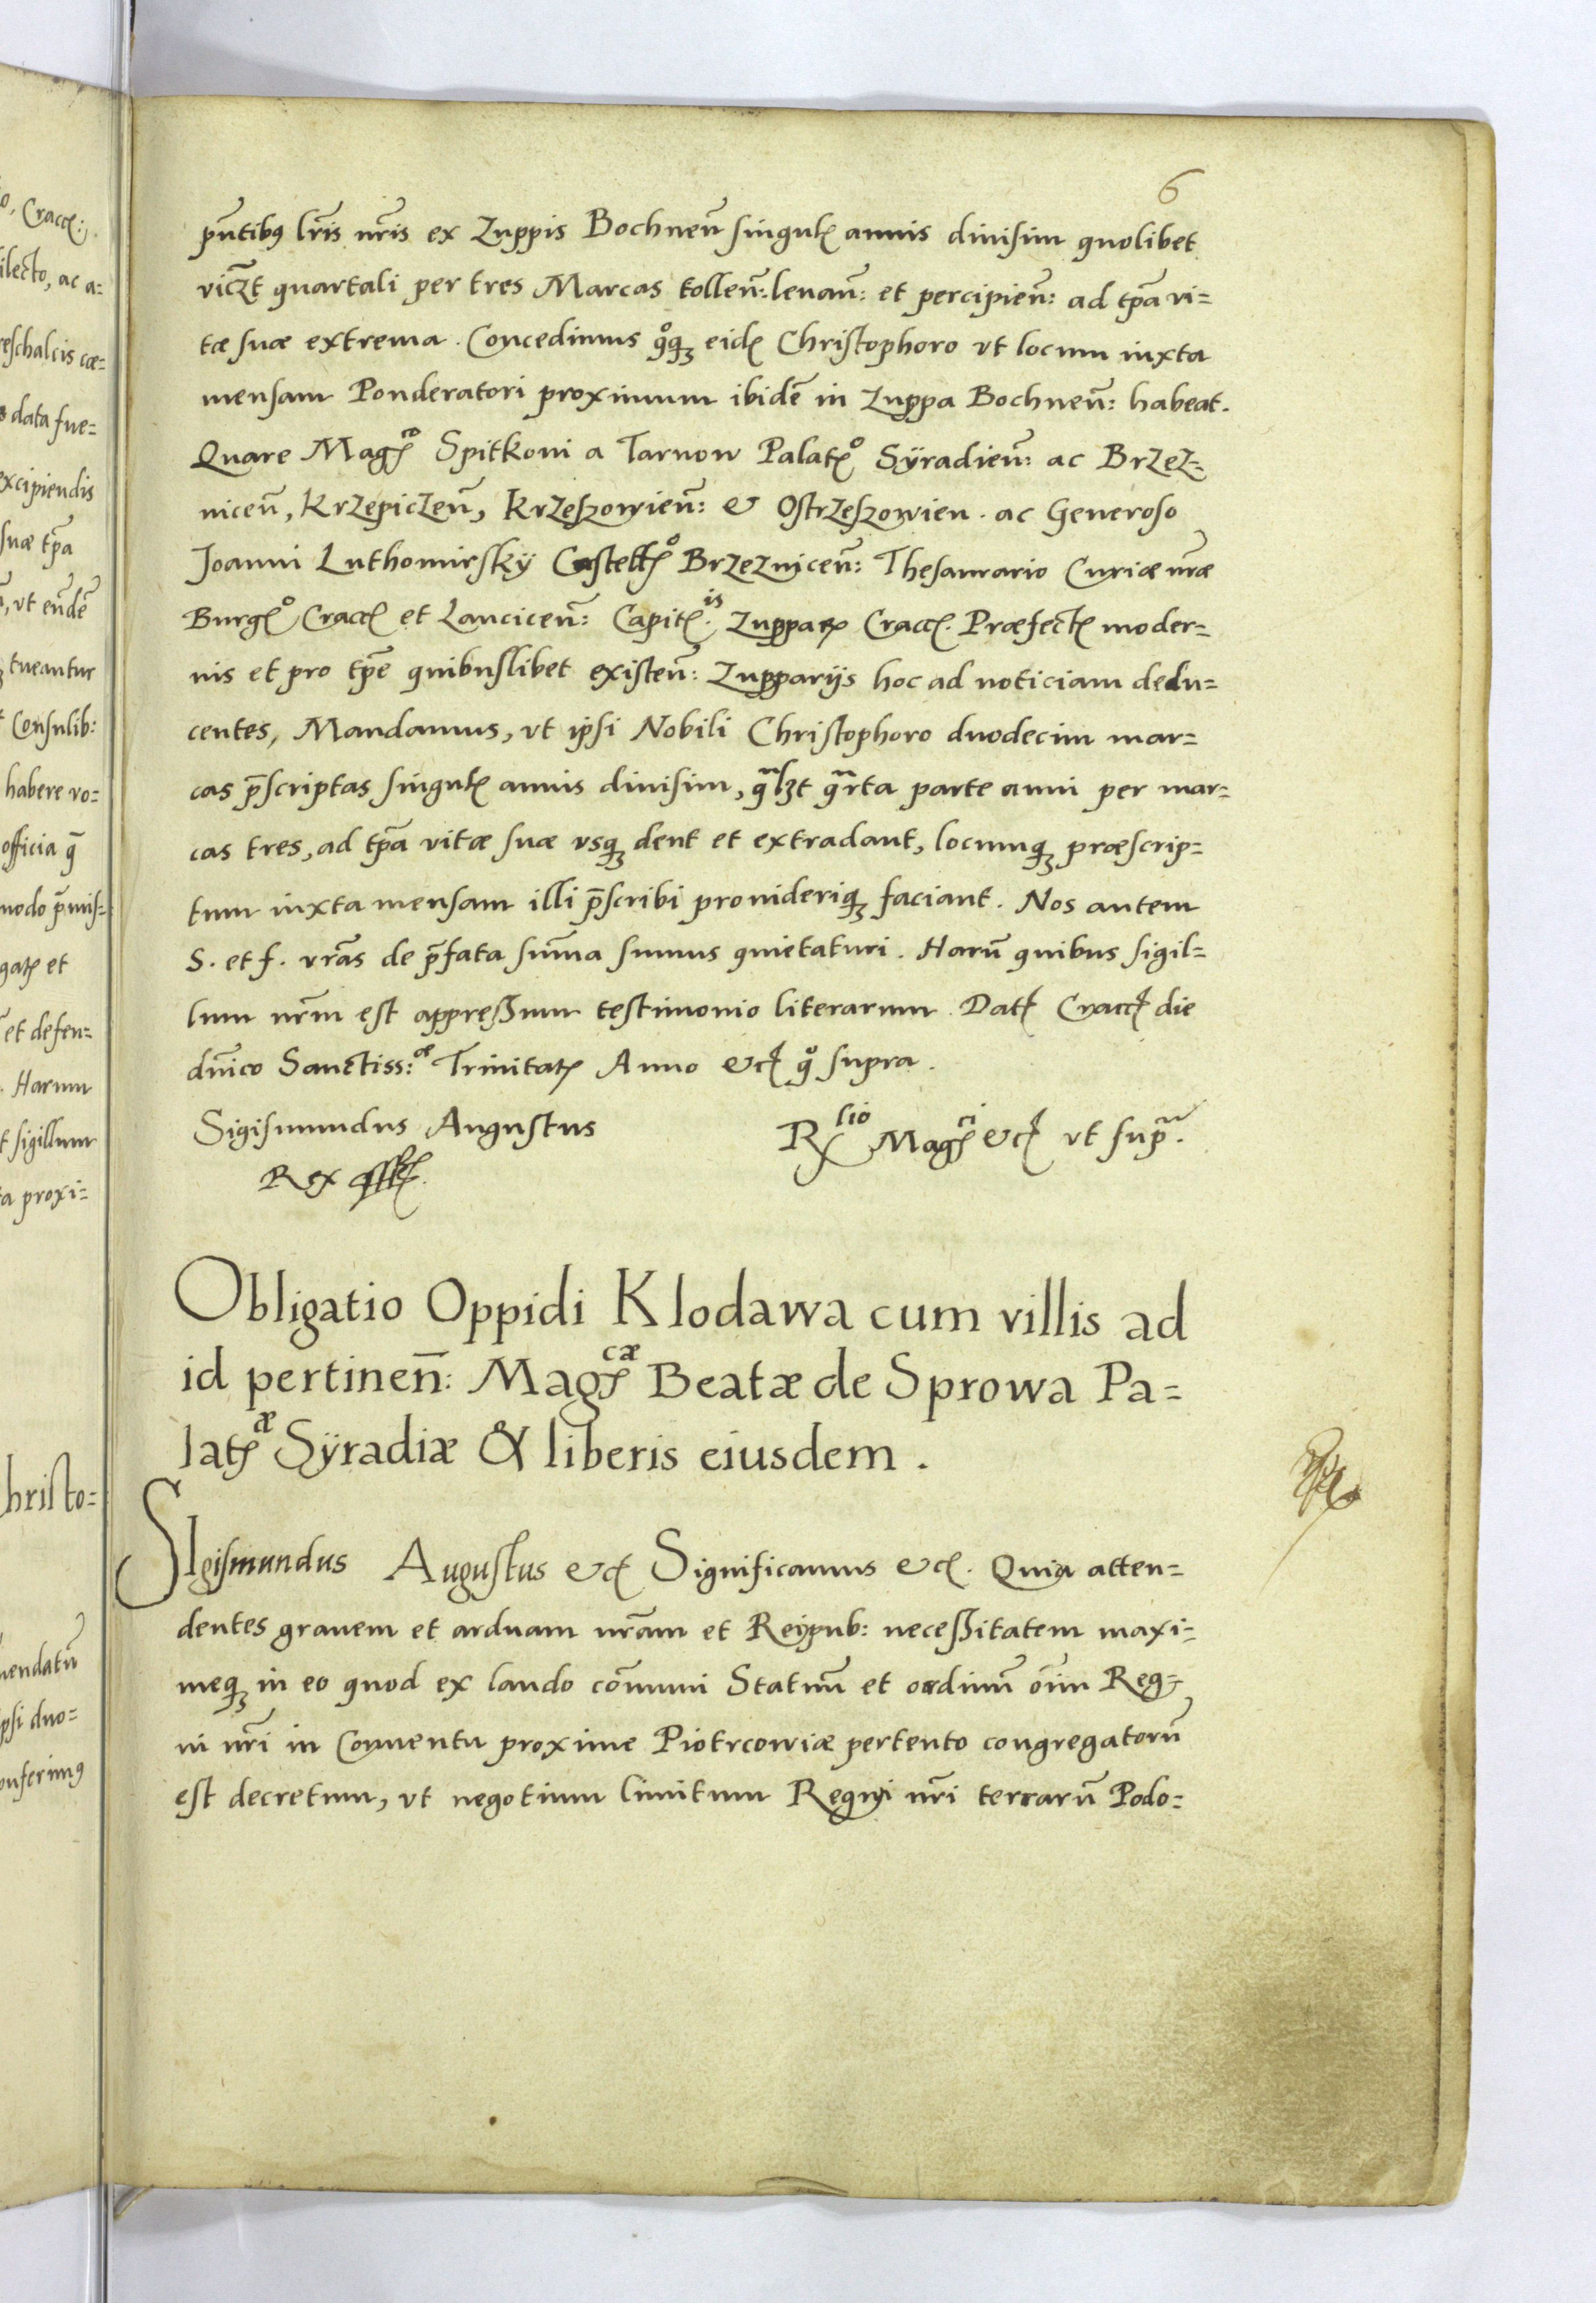 6
pn̄tibꝰ lr̄is nr̄is ex Zuppis Bochneñ singulꝭ annis diuisim quolibet
vicꝫt quartali per tres Marcas tolleñ: leuañ: et percipieñ: ad tp̄a vi=
tæ suæ extrema. Concedimus qͦqꝫ eidꝭ Christophoro vt locum iuxta
mensam Ponderatori proximum ibidē in Zuppa Bochneñ: habeat.
Quare Magꝭᶜᵒ Spitkoni a Tarnow Palatꝭᵒ Sÿradieñ: ac Brzez=
niceñ, Krzepiczeñ, Krzeszowieñ: & Ostrzeszowien. ac Generoso
Joanni Luthomirskÿ Castellꝭᵒ Brzezniceñ: Thesaurario Curiæ nr̄æ
Burgꝭᵒ Craccꝭ et Lanciceñ: Capitꝭ.ⁱˢ Zupparꝝ Craccꝭ. Præfectꝭ moder=
nis et pro tp̄e quibuslibet existeñ: Zupparijs hoc ad noticiam dedu=
centes, Mandamus, vt ipsi Nobili Christophoro duodecim mar=
cas p̄scriptas singulꝭ annis diuisim, qᵃlꝫt qᵃrta parte anni per mar=
cas tres, ad tp̄a vitæ suæ vsqꝫ dent et extradant, locumqꝫ præscrip=
tum iuxta mensam illi p̄scribi prouideriqꝫ faciant. Nos autem
S. et f. vr̄as de p̄fata sum̄a sumus quietaturi. Harū quibus sigil=
lum nr̄m est appressum testimonio literarum. Datꝭ Craccꝭ die
dn̄ico Sanctiss:ᵃᵉ Trinitatꝭ Anno &cꝭ qͦ supra.
Sigismundus Augustus
Rex
Rˡⁱᵒ Magꝭᶜⁱ &cꝭ vt supᵃ.
Obligatio Oppidi Klodawa cum villis ad
id pertineñ: Magꝭᶜᵃᵉ Beatæ de Sprowa Pa=
latꝭᵃᵉ Sÿradiæ & liberis eiusdem.
SIgismundus Augustus &cꝭ Significamus &cꝭ. Quia atten=
dentes grauem et arduam nr̄am et Reipub: necessitatem maxi=
meqꝫ in eo quod ex laudo cōmuni Statuū et ordinū oīm Reg=
ni nr̄i in Conuentu proxime Piotrcowiæ pertento congregatorū
est decretum, vt negotium limitum Regni nr̄i terrarū Podo=